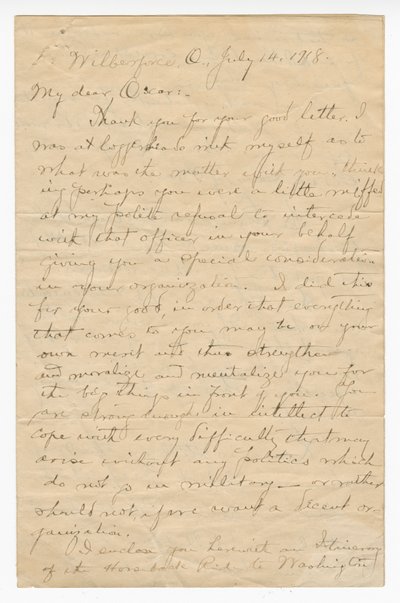 Wilberforce, O., July 14, 1918.
My dear Oscar:-
Thank you for your good letter. I
was at loggerheads with myself as to
what was the matter with you, think-
ing perhaps you were a little miffed
at my polite refusal to intercede
with that officer in your behalf
giving you a special consideration
in your organization. I did this
for your good in order that everything
that comes to you may be on your
own merit and thus strengthen
and moralize and mentalize you for
the big things in front of you. You
are strong enough in intellect to
cope with every difficulty that may
arise without any politics which
do not go in military — or rather
should not, if we want a decent or-
ganization.
I enclose you herewith an Itinerary
of the Horseback Ride to Washington